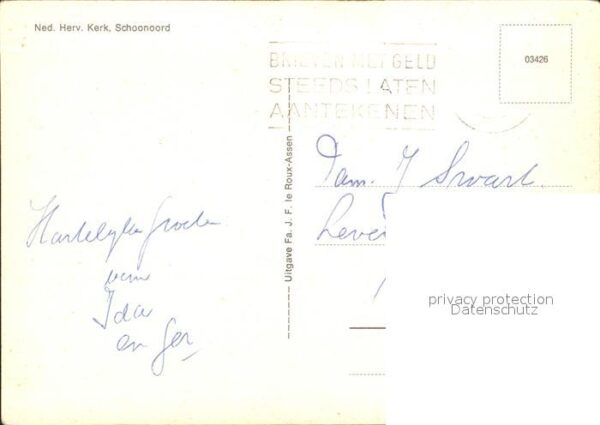 Ned. Herv. Kerk, Schoonoord
BRIEVEN MET GELD
STEEDS LATEN
AANTEKENEN
03426
Uitgave Fa. J. F. le Roux-Assen
Fam. J Swart.
Hartelijke groeten
van
Ida
en Ger
privacy protection
Datenschutz